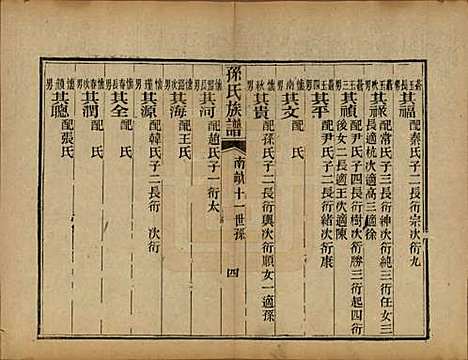 其福 配秦氏子二長衍宗次衍九
其祿 配常氏子三長衍神次衍純三衍任女三
長適杭次適高三適徐
其禎 配尹氏子四長衍樹次衍勝三衍起四衍
後女二長適王次適陳
其平 配尹氏子二長衍緒次衍康
其文 配 氏
其貴 配孫氏子二長衍興次衍順女一適孫
孫氏族譜 南試十一世孫 四
其河 配趙氏子一衍太
其海 配王氏
其源 配韓氏子二長衍 次衍
其全 配 氏
其潤 配 氏
其聰 配張氏